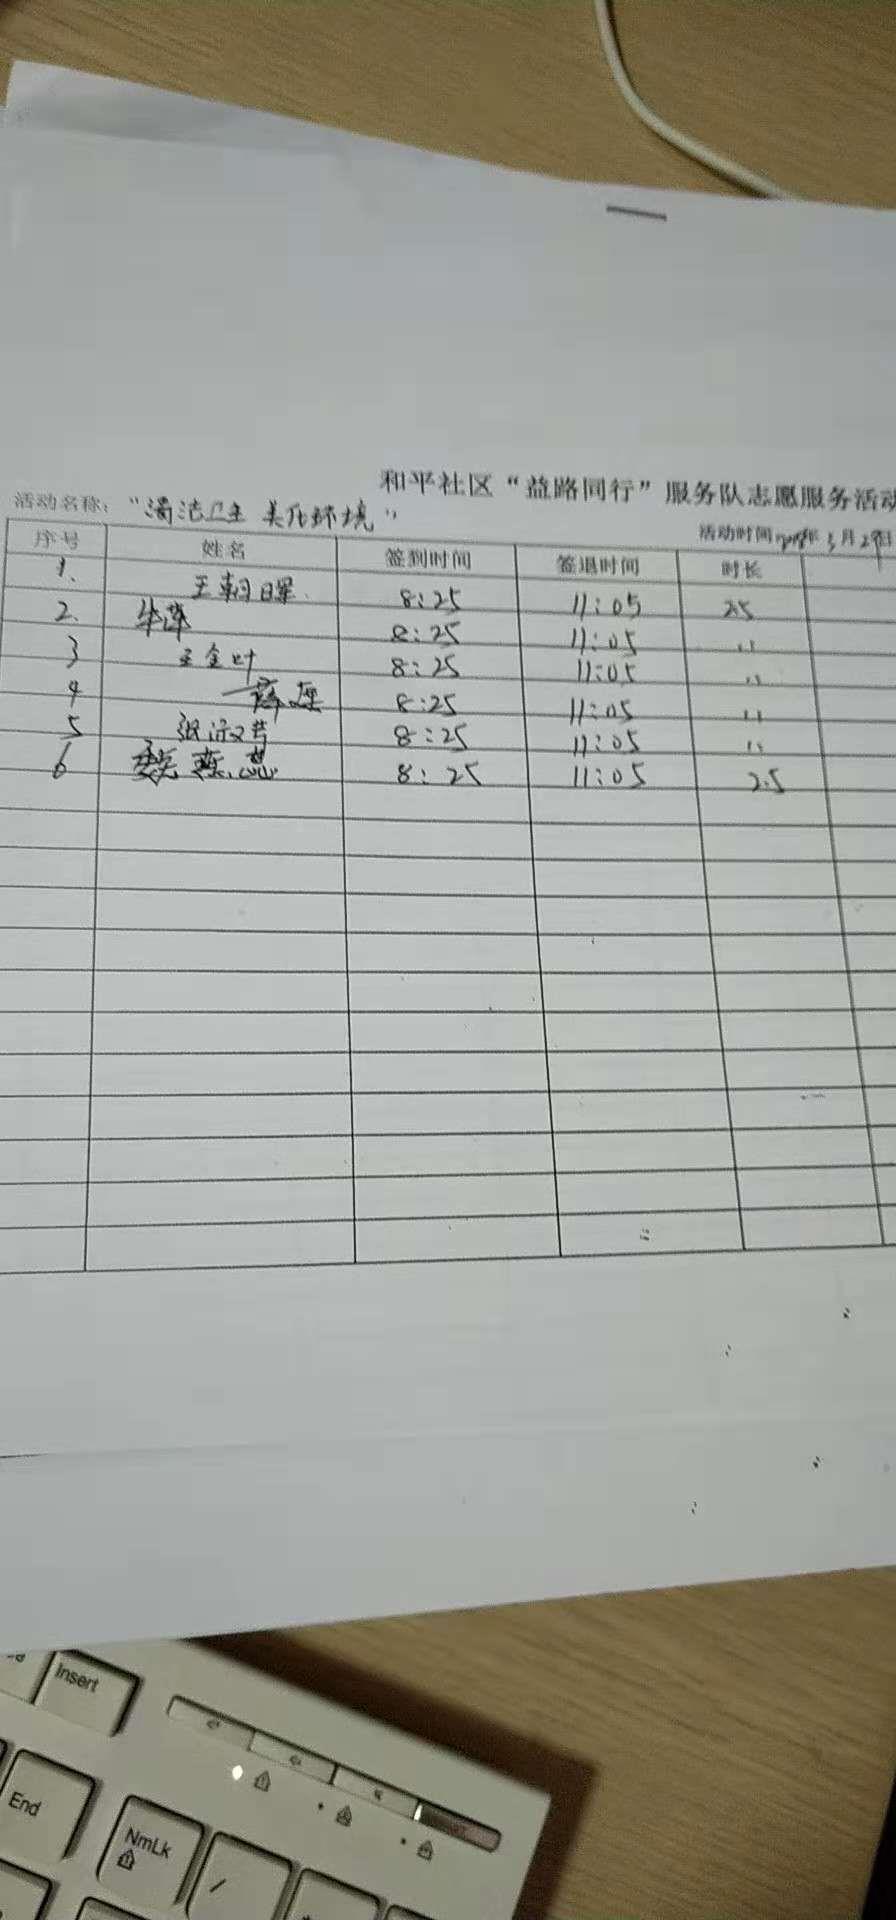 和平社区“益路同行”服务队志愿服务活动
活动名称：“清洁卫生 美化环境”
活动时间 年3月29日
序号 姓名 签到时间 签退时间 时长
1. 王朝日军 8:25 11:05 2.5
2. 牛萍 8:25 11:05 〃
3 王金叶 8:25 11:05 〃
4 8:25 11:05 〃
5 8:25 11:05 〃
6 魏燕蕊 8:25 11:05 2.5
Insert
End
NmLk
/